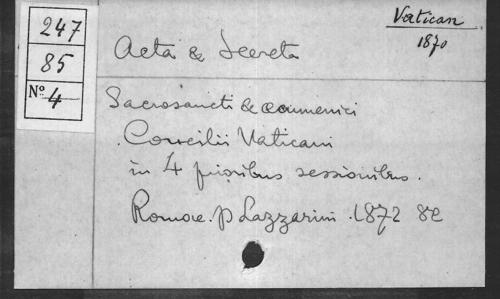 247
85
Nº 4
Vatican
1870
Acta & Decreta
Sacrosancti & œcumenici
Concilii Vaticani
in 4 prioribus sessionibus.
Romae. p Lazzarini. 1872 8º